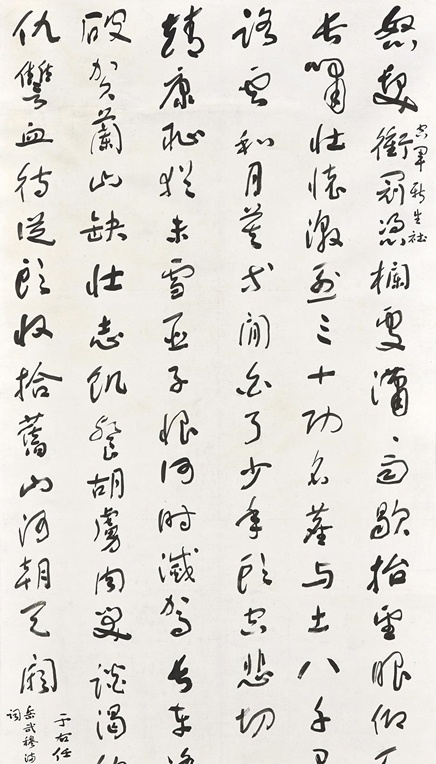 空軍新生社
怒髮衝冠憑欄處瀟、雨歇抬望眼仰
長嘯壯懷激烈三十功名塵与土八千
路雲和月莫等閒白了少年頭空悲切
靖康恥猶未雪臣子恨何時滅駕長車
破賀蘭山缺壯志飢餐胡虜肉笑談渴
仇讐血待從頭收拾舊山河朝天闕
于右任
岳武穆滿
詞